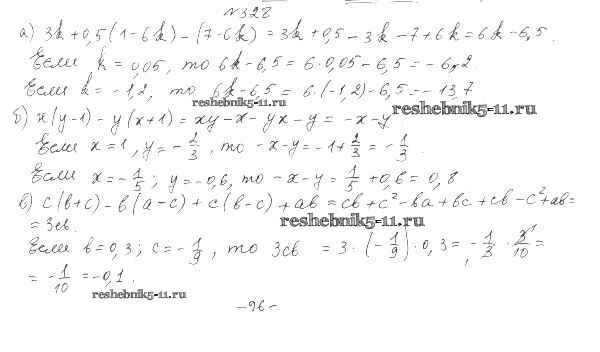 №328
а) 3k+0,5(1-6k)-(7-6k)=3k+0,5-3k-7+6k=6k-6,5.
Если k=0,05, то 6k-6,5=6·0,05-6,5=-6,2
Если k=-1,2, то 6k-6,5=6·(-1,2)-6,5=-13,7
reshebnik5-11.ru
reshebnik5-11.ru
б) x(y-1)-y(x+1)=xy-x-yx-y=-x-y
Если x=1, y=-2/3, то -x-y=-1+2/3=-1/3.
Если x=-1/5; y=-0,6, то -x-y=1/5+0,6=0,8
в) c(b+c)-b(a-c)+c(b-c)+ab=cb+c²-ba+bc+cb-c²+ab=
=3cb.
reshebnik5-11.ru
Если b=0,3; c=-1/9, то 3cb=3·(-1/9)·0,3=-1/3·3/10=
=-1/10=-0,1.
reshebnik5-11.ru
-96-